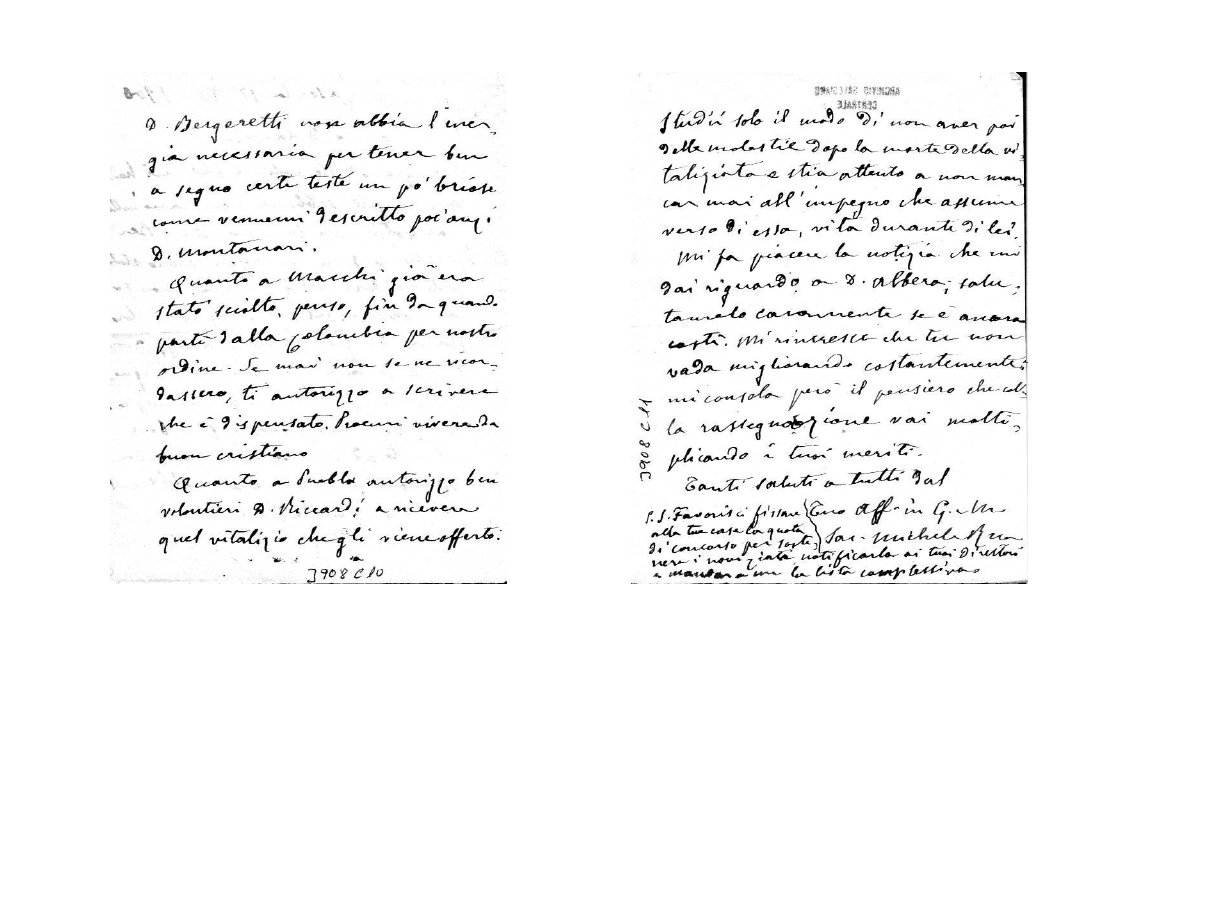 D. Bergeretti non abbia l'ener-
gia necessaria per tener ben
a segno certe teste un po' briose
come vennemi descritto poc'anzi
D. Montanari.
Quanto a Macchi già era
stato sciolto, penso, fin da quando
partì dalla Colombia per nostro
ordine. Se mai non se ne ricor-
dassero, ti autorizzo a scrivere
che è dispensato. Procuri vivere da
buon cristiano
Quanto a Puebla autorizzo ben
volontieri D. Riccardi a ricevere
quel vitalizio che gli viene offerto.
3908 C10
ARCHIVIO SALESIANO
CENTRALE
Studii solo il modo di non aver poi
delle molestie dopo la morte della vi-
taliziata e stia attento a non man-
car mai all'impegno che assume
verso di essa, vita durante di lei.
Mi fa piacere la notizia che mi
dai riguardo a D. Albera; salu-
tamelo caramente se è ancora
costì. Mi rincresce che tu non
vada migliorando costantemente;
mi consola però il pensiero che col-
la rassegnazione vai molti-
plicando i tuoi meriti.
Tanti saluti a tutti dal
Tuo Aff. in G. e M.
Sac. Michele Rua
P.S. Favorisci fissare
alla tue case la quota
di concorso per soste-
nere i noviziati notificarla ai tuoi direttori
e mandare a me la lista complessiva
3908 C11